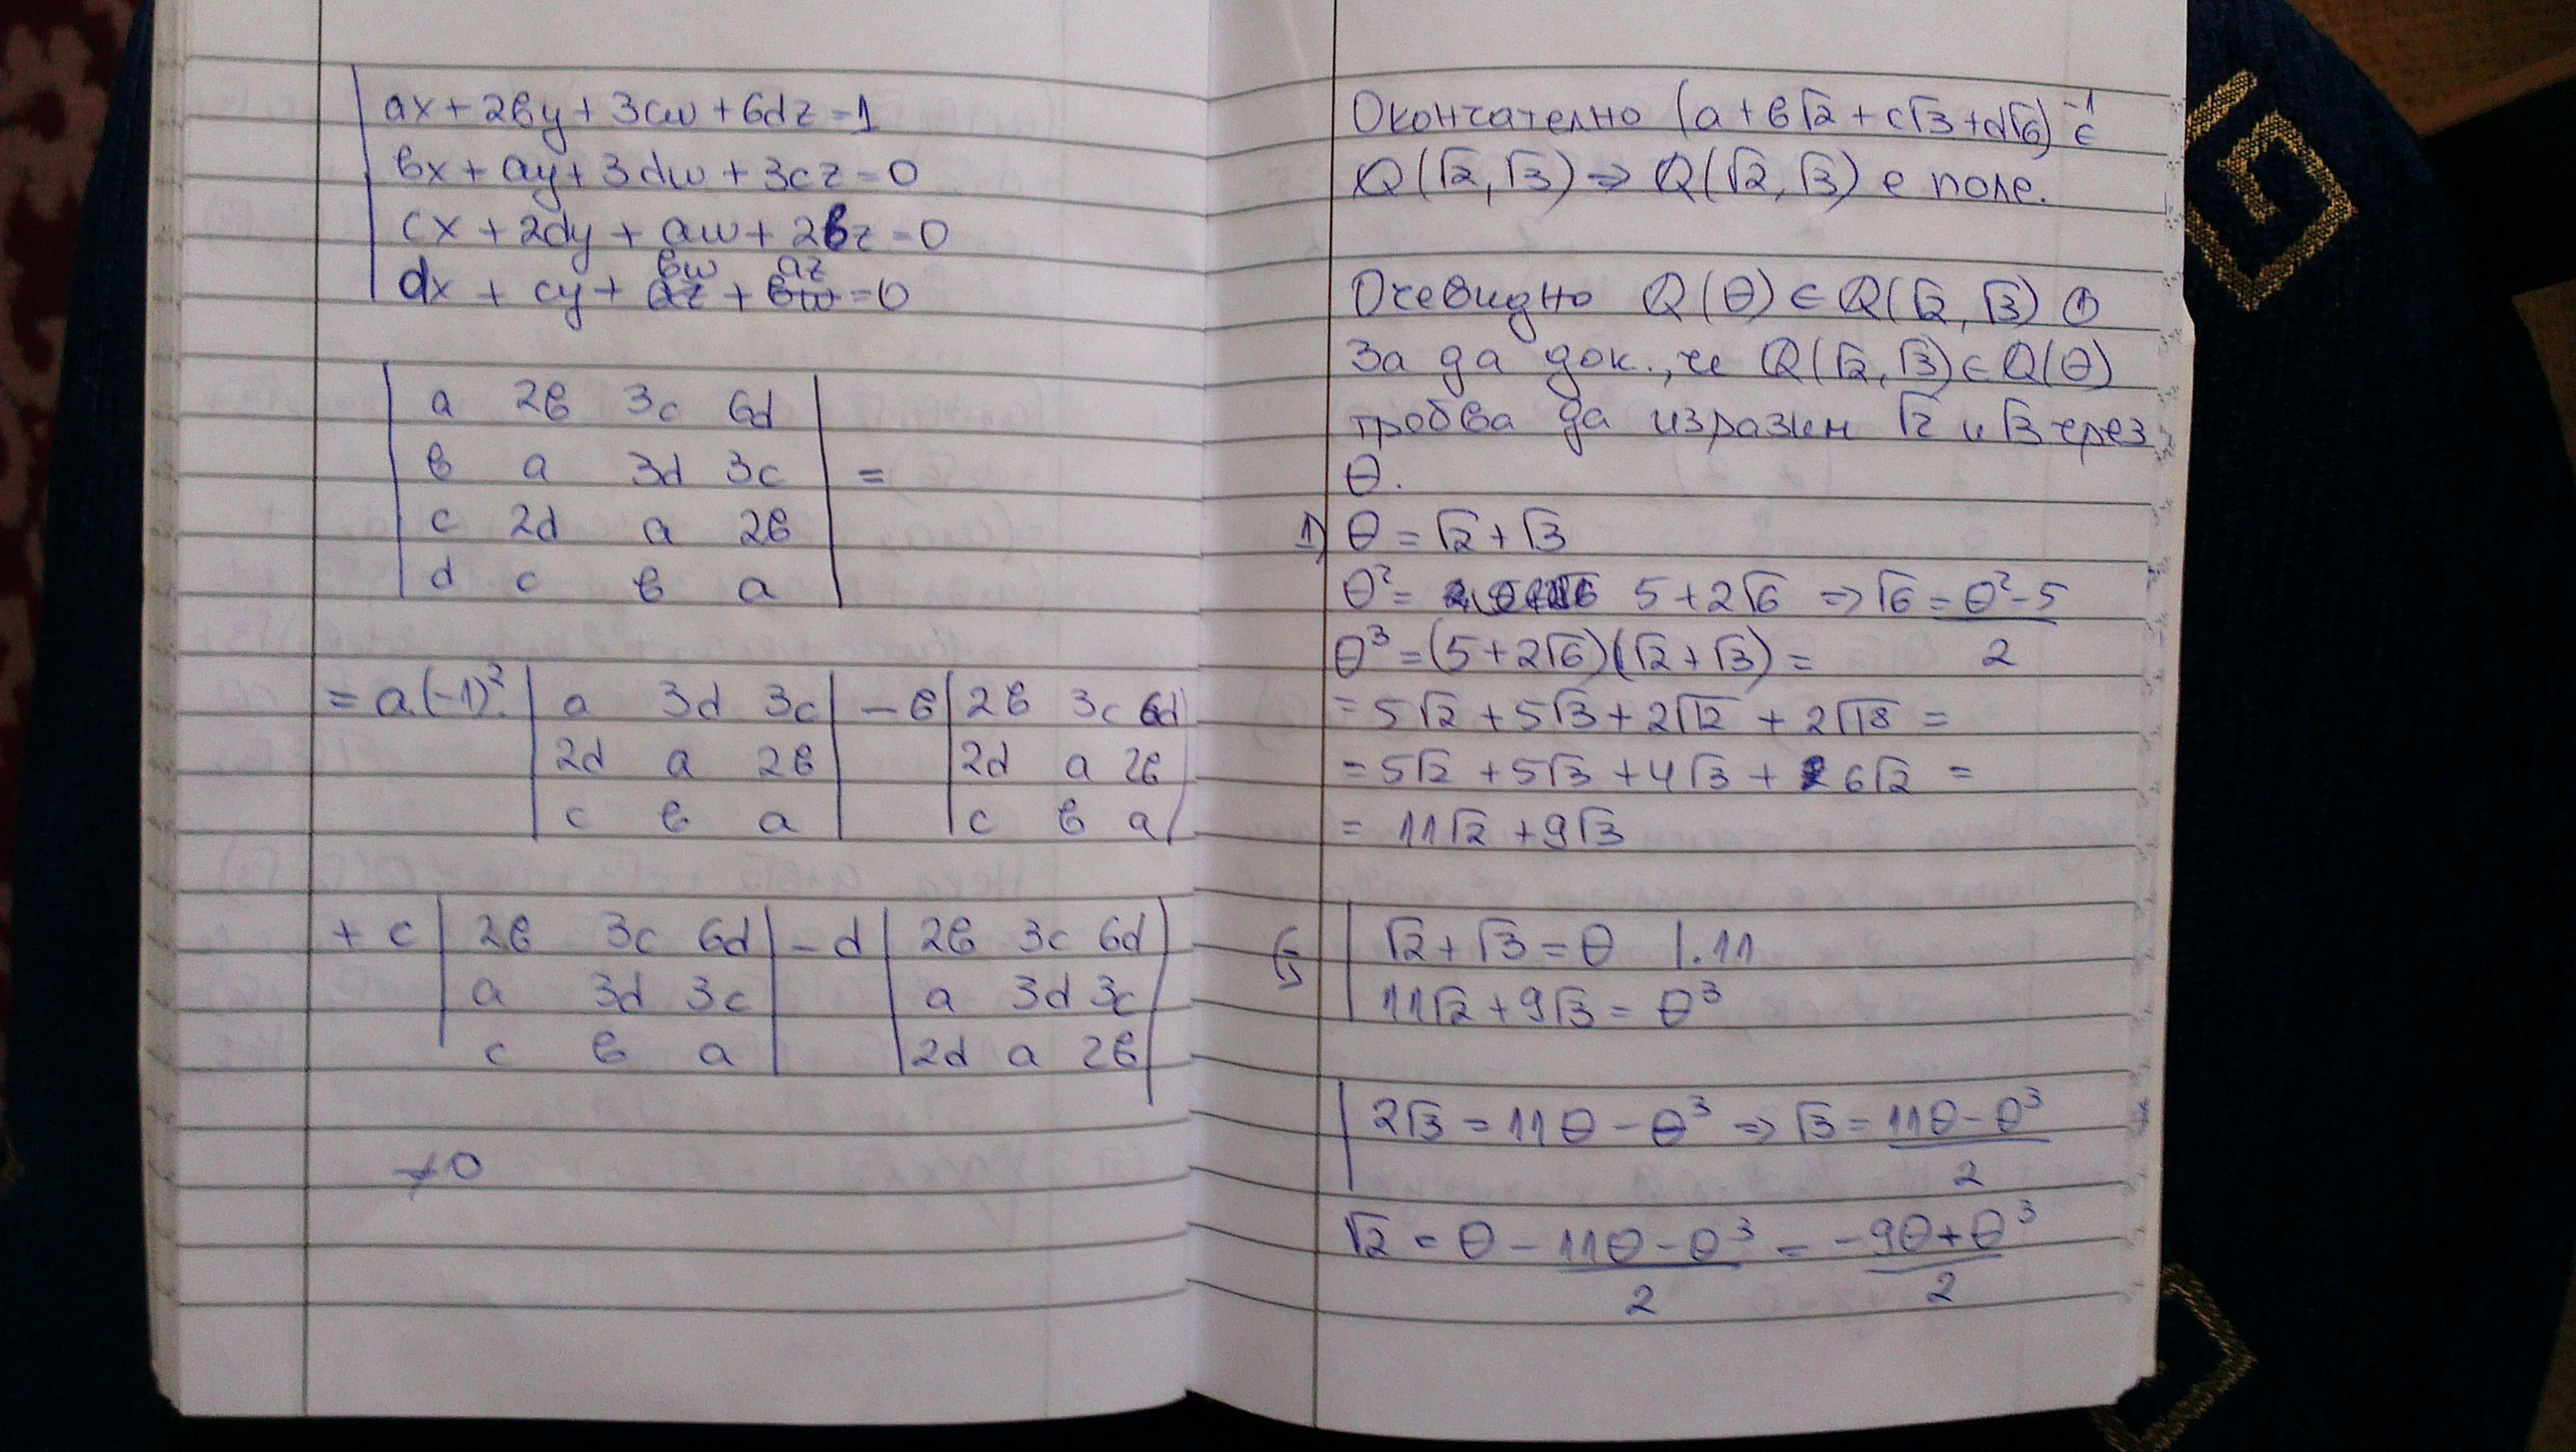 ax + 2вy + 3cw + 6dz = 1
вx + ay + 3dw + 3cz = 0
cx + 2dy + aw + 2вz = 0
вw az
dx + cy + az + вw = 0
a 2в 3c 6d
в a 3d 3c =
c 2d a 2в
d c в a
= a.(-1)². | a 3d 3c | - в | 2в 3c 6d |
2d a 2в 2d a 2в
c в a c в a
+ c | 2в 3c 6d | - d | 2в 3c 6d |
a 3d 3c a 3d 3c
c в a 2d a 2в
≠0
Окончателно (a + в√2 + c√3 + d√6)⁻¹ ∈
Q(√2, √3) ⇒ Q(√2, √3) е поле.
Очевидно Q(θ) ⊂ Q(√2, √3) ①
За да док., че Q(√2, √3) ⊂ Q(θ)
трябва да изразим √2 и √3 чрез
θ.
1) θ = √2 + √3
θ² = 5 + 2√6 ⇒ √6 = θ² - 5
θ³ = (5 + 2√6)(√2 + √3) = 2
= 5√2 + 5√3 + 2√12 + 2√18 =
= 5√2 + 5√3 + 4√3 + 6√2 =
= 11√2 + 9√3
√2 + √3 = θ |.11
11√2 + 9√3 = θ³
2√3 = 11θ - θ³ ⇒ √3 = 11θ - θ³
2
√2 = θ - 11θ - θ³ = -9θ + θ³
2 2